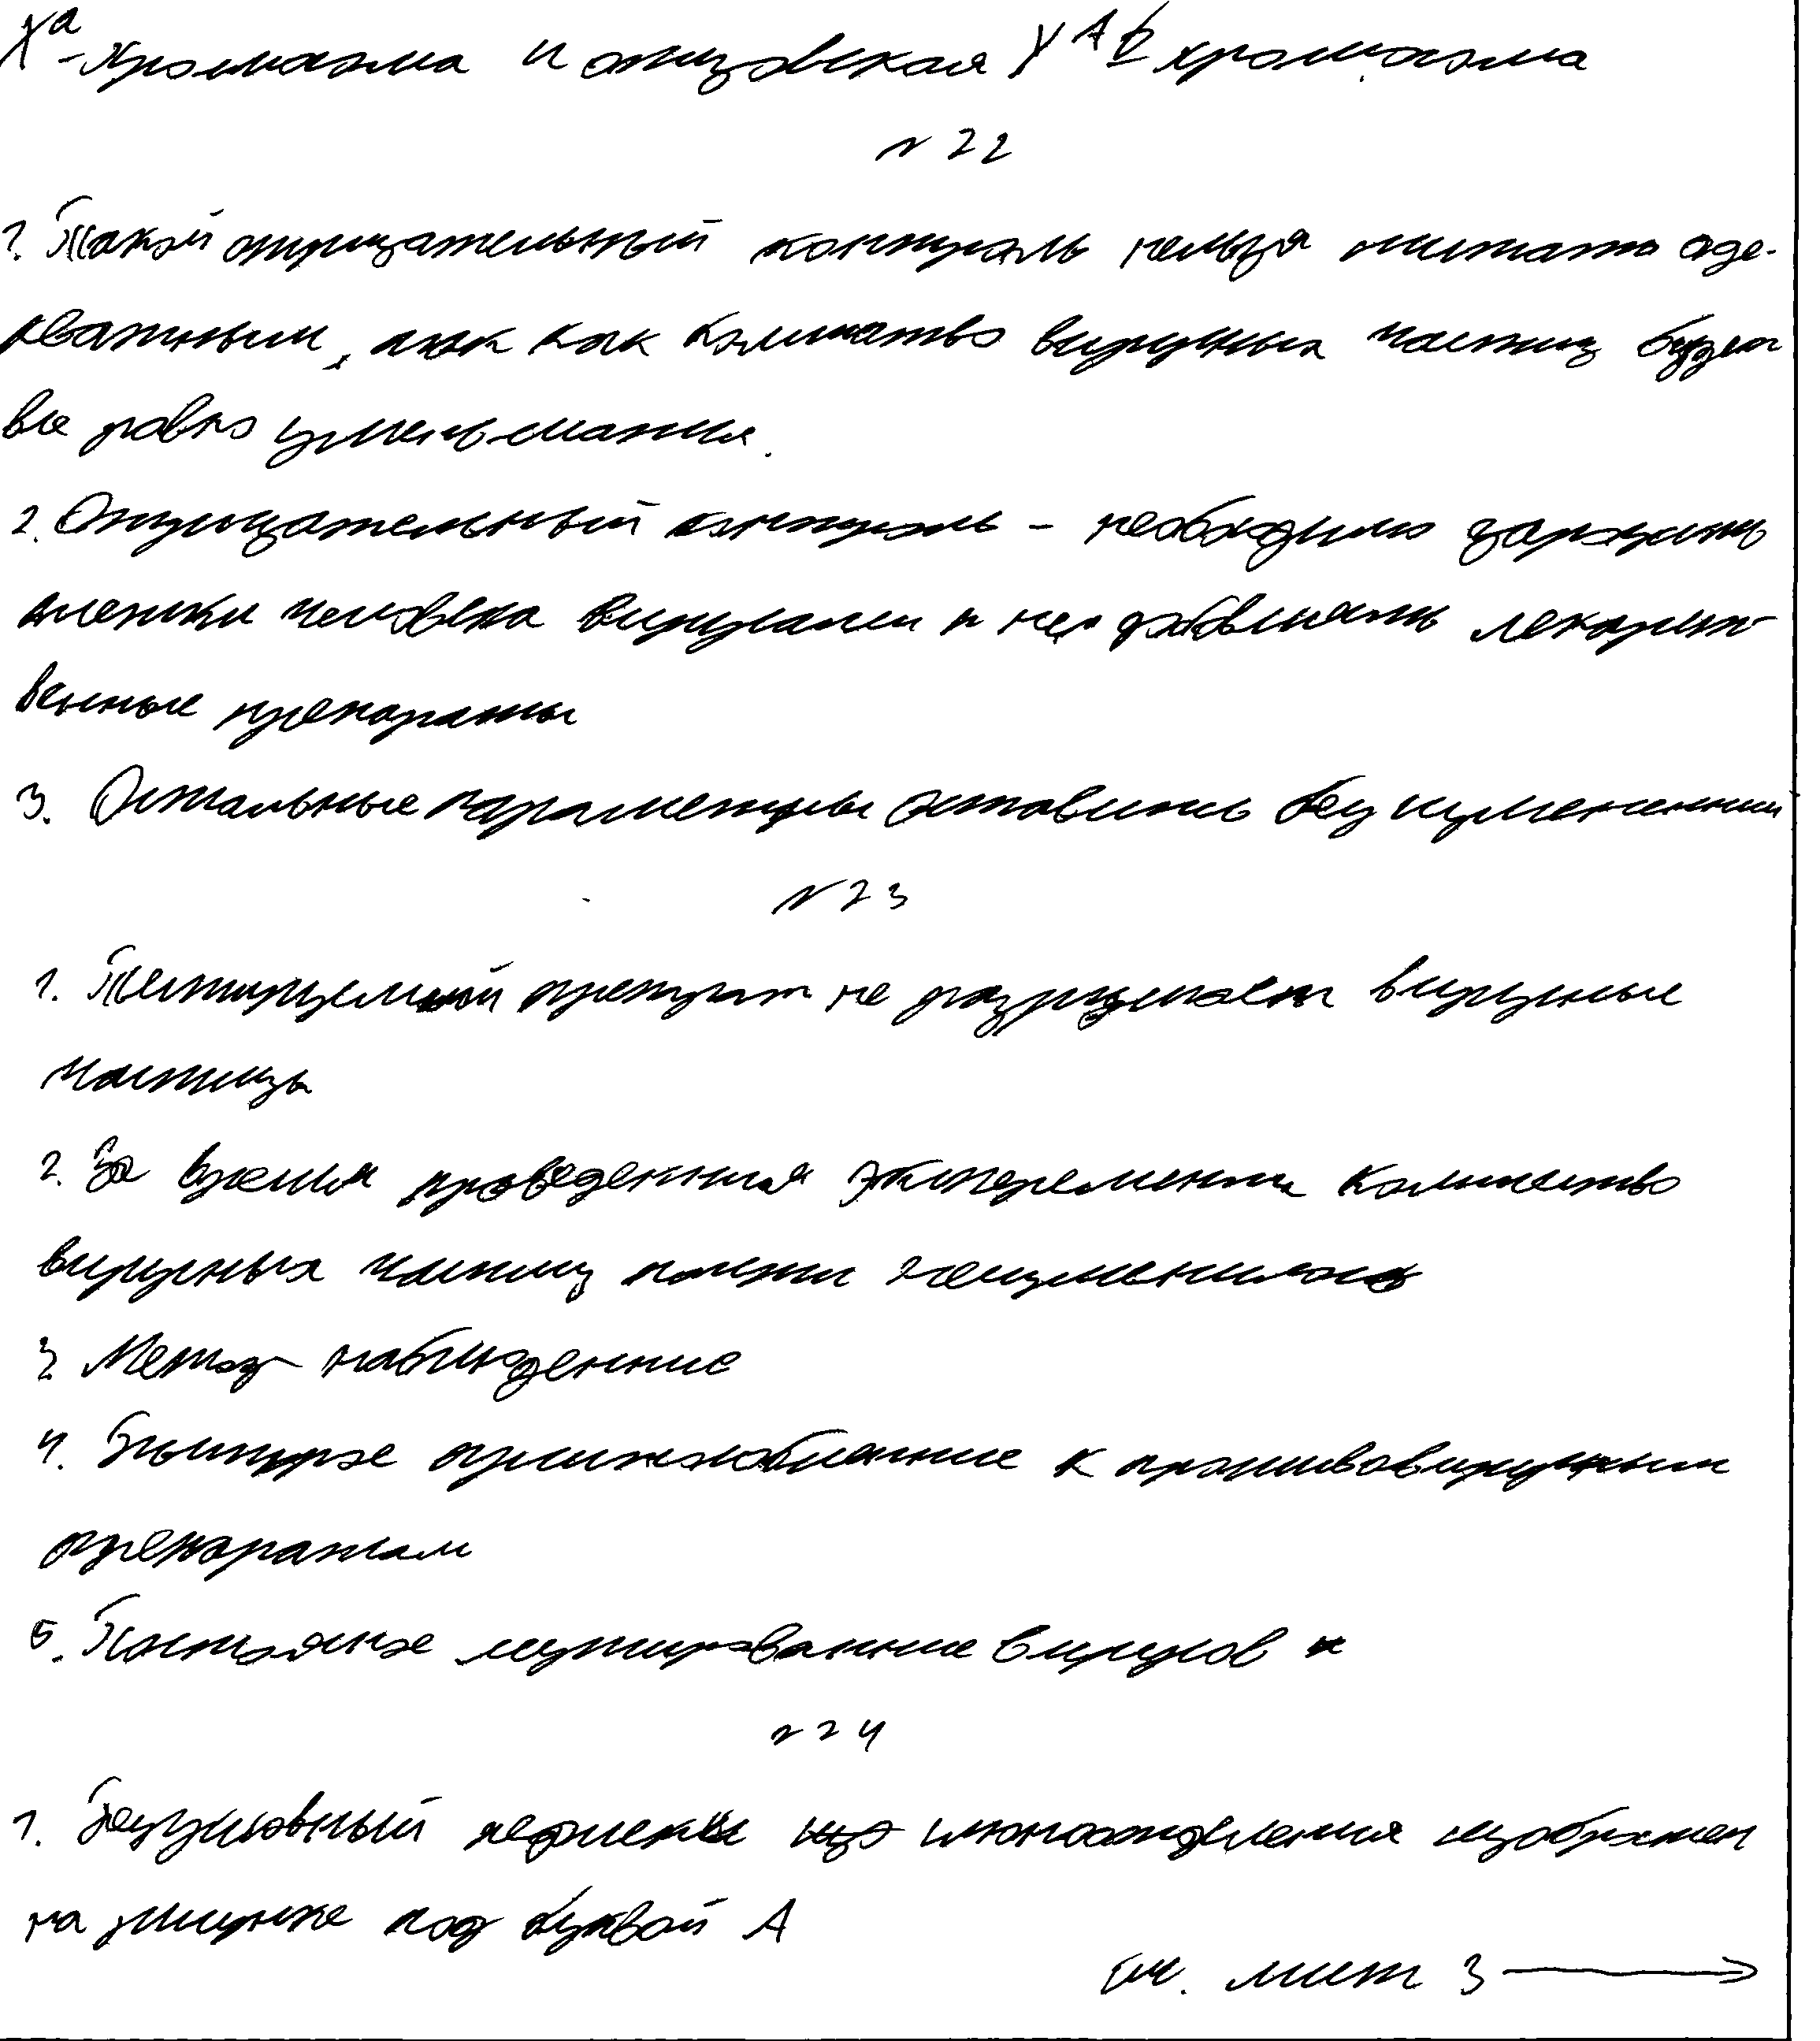 X^a - хромосома и отцовская Y^Ab хромосома
№ 22
1. Такой отрицательный контроль нельзя считать аде-
кватным, так как количество вирусных частиц будет
все равно уменьшатся.
2. Отрицательный контроль - необходимо заразить
клетки человека вирусами и не добавлять лекарст-
венные препараты
3. Остальные параметры оставить без изменении
№ 23
1. Тестируемый препарат не разрушает вирусные
частицы
2. За время проведенния эксперемента количество
вирусных частиц почти неизменилось
3 Метод - наблюденние
4. Быстрое приспособление к противовирусным
препаратам
5. Постояное мутированние вирусов
№ 24
1. Безусловный рефлекс слюноотделения изображен
на рисунке под буквой А
см. лист 3